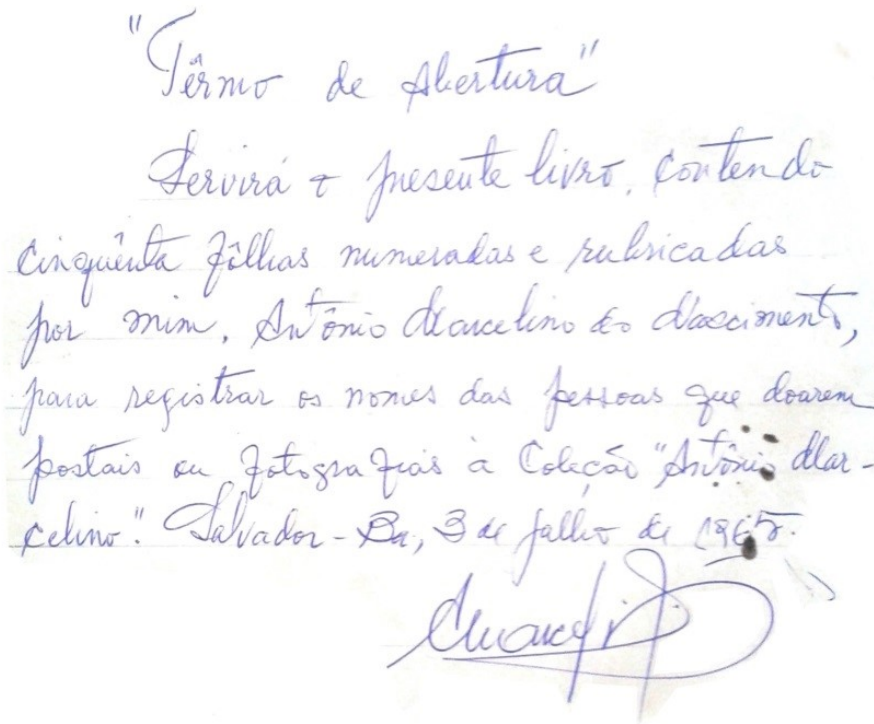 "Têrmo de Abertura"
Servirá o presente livro, contendo
cinquênta fôlhas numeradas e rubricadas
por mim, Antônio Marcelino do Nascimento,
para registrar os nomes das pessoas que doarem
postais ou fotografias à Coleção "Antônio Mar-
celino". Salvador - Ba, 3 de julho de 1965.